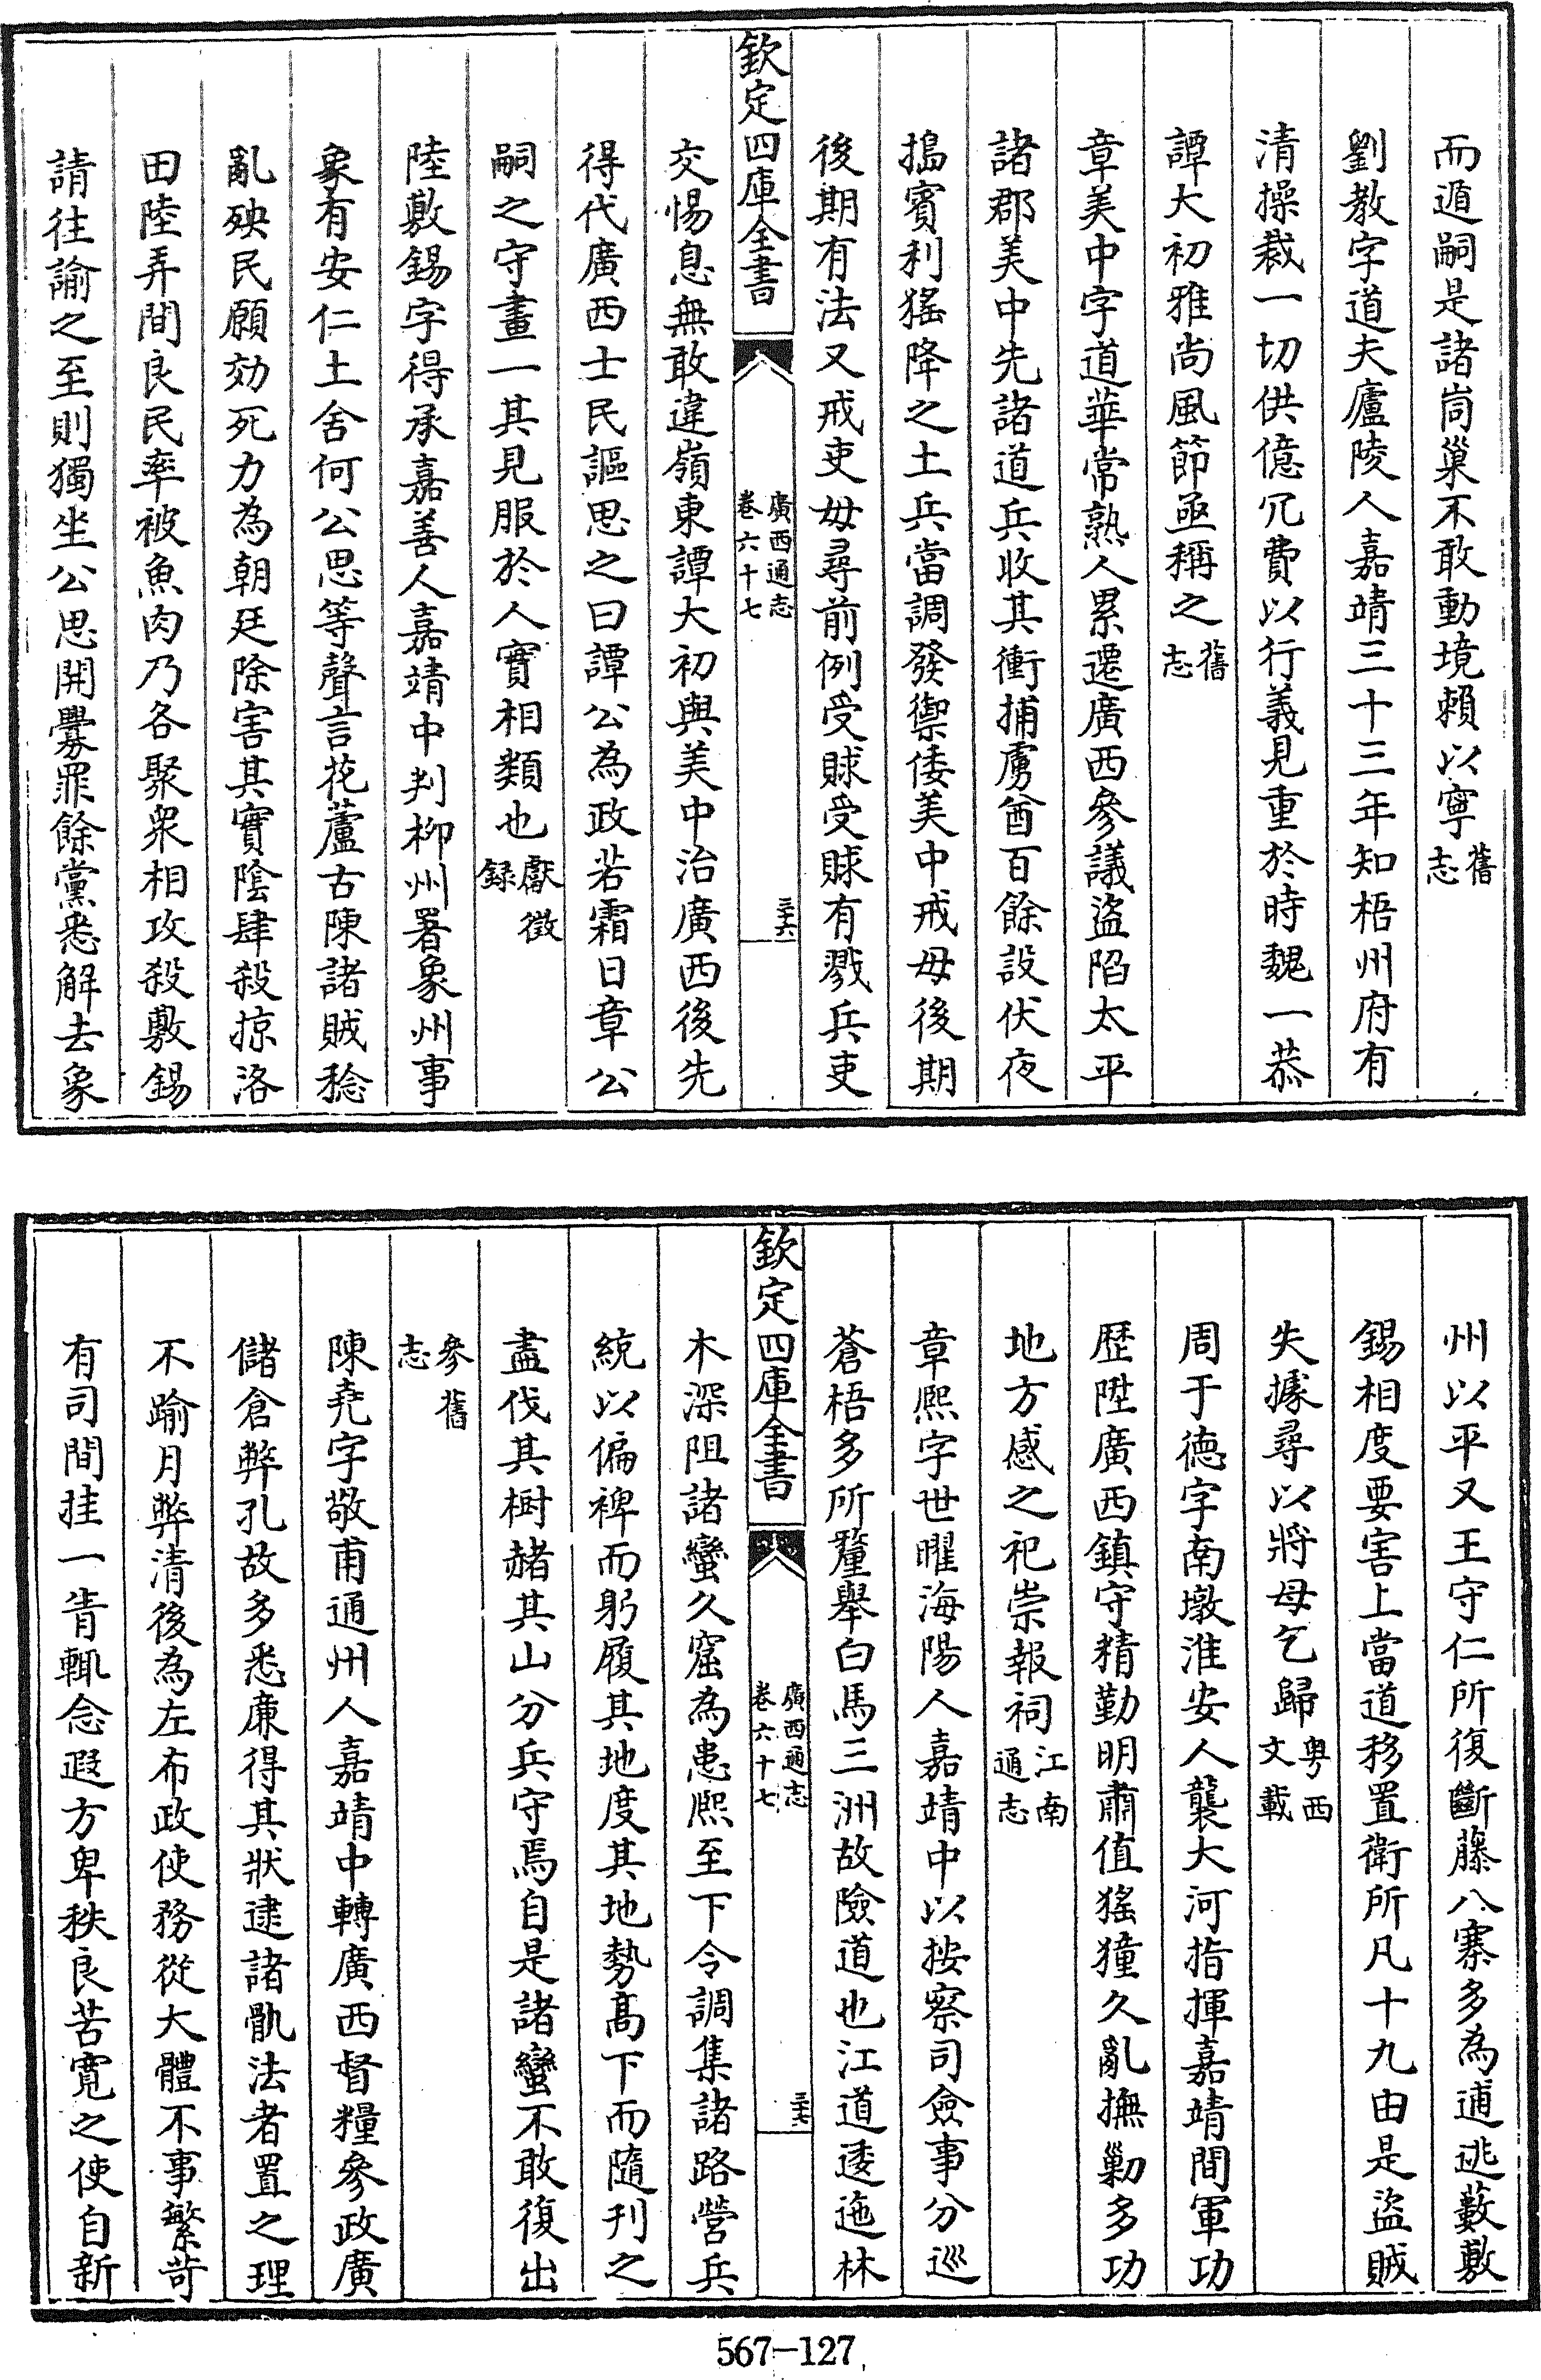 而遁嗣是諸峝巢不敢動境賴以寧舊志
劉教字道夫廬陵人嘉靖三十三年知梧州府有
清操裁一切供億冗費以行義見重於時魏一恭
譚大初雅尚風節亟稱之舊志
章美中字道華常熟人累遷廣西參議盜陷太平
諸郡美中先諸道兵收其衝捕虜酋百餘設伏夜
搗賓利猺降之土兵當調發禦倭美中戒毋後期
後期有法又戒吏毋尋前例受賕受賕有戮兵吏
欽定四庫全書 廣西通志 卷六十七 三十六
交惕息無敢違嶺東譚大初與美中治廣西後先
得代廣西士民謳思之曰譚公為政若霜日章公
嗣之守畫一其見服於人實相類也獻徵錄
陸敷錫字得承嘉善人嘉靖中判柳州署象州事
象有安仁土舍何公思等聲言花蘆古陳諸賊稔
亂殃民願効死力為朝廷除害其實陰肆殺掠洛
田陸弄間良民率被魚肉乃各聚眾相攻殺敷錫
請往諭之至則獨坐公思開釁罪餘黨悉解去象
州以平又王守仁所復斷藤八寨多為逋逃藪敷
錫相度要害上當道移置衛所凡十九由是盜賊
失據尋以將母乞歸粵西文載
周于德字南墩淮安人襲大河指揮嘉靖間軍功
歷陞廣西鎮守精勤明肅值猺獞久亂撫勦多功
地方感之祀崇報祠江南通志
章熙字世曜海陽人嘉靖中以按察司僉事分巡
蒼梧多所釐舉白馬三洲故險道也江道逶迤林
欽定四庫全書 廣西通志 卷六十七 三十七
木深阻諸蠻久窟為患熙至下令調集諸路營兵
統以偏裨而躬履其地度其地勢高下而隨刊之
盡伐其樹赭其山分兵守焉自是諸蠻不敢復出
參舊志
陳堯字敬甫通州人嘉靖中轉廣西督糧參政廣
儲倉弊孔故多悉廉得其狀逮諸骫法者置之理
不踰月弊清後為左布政使務從大體不事繁苛
有司間挂一眚輒念遐方卑秩良苦寬之使自新
567-127